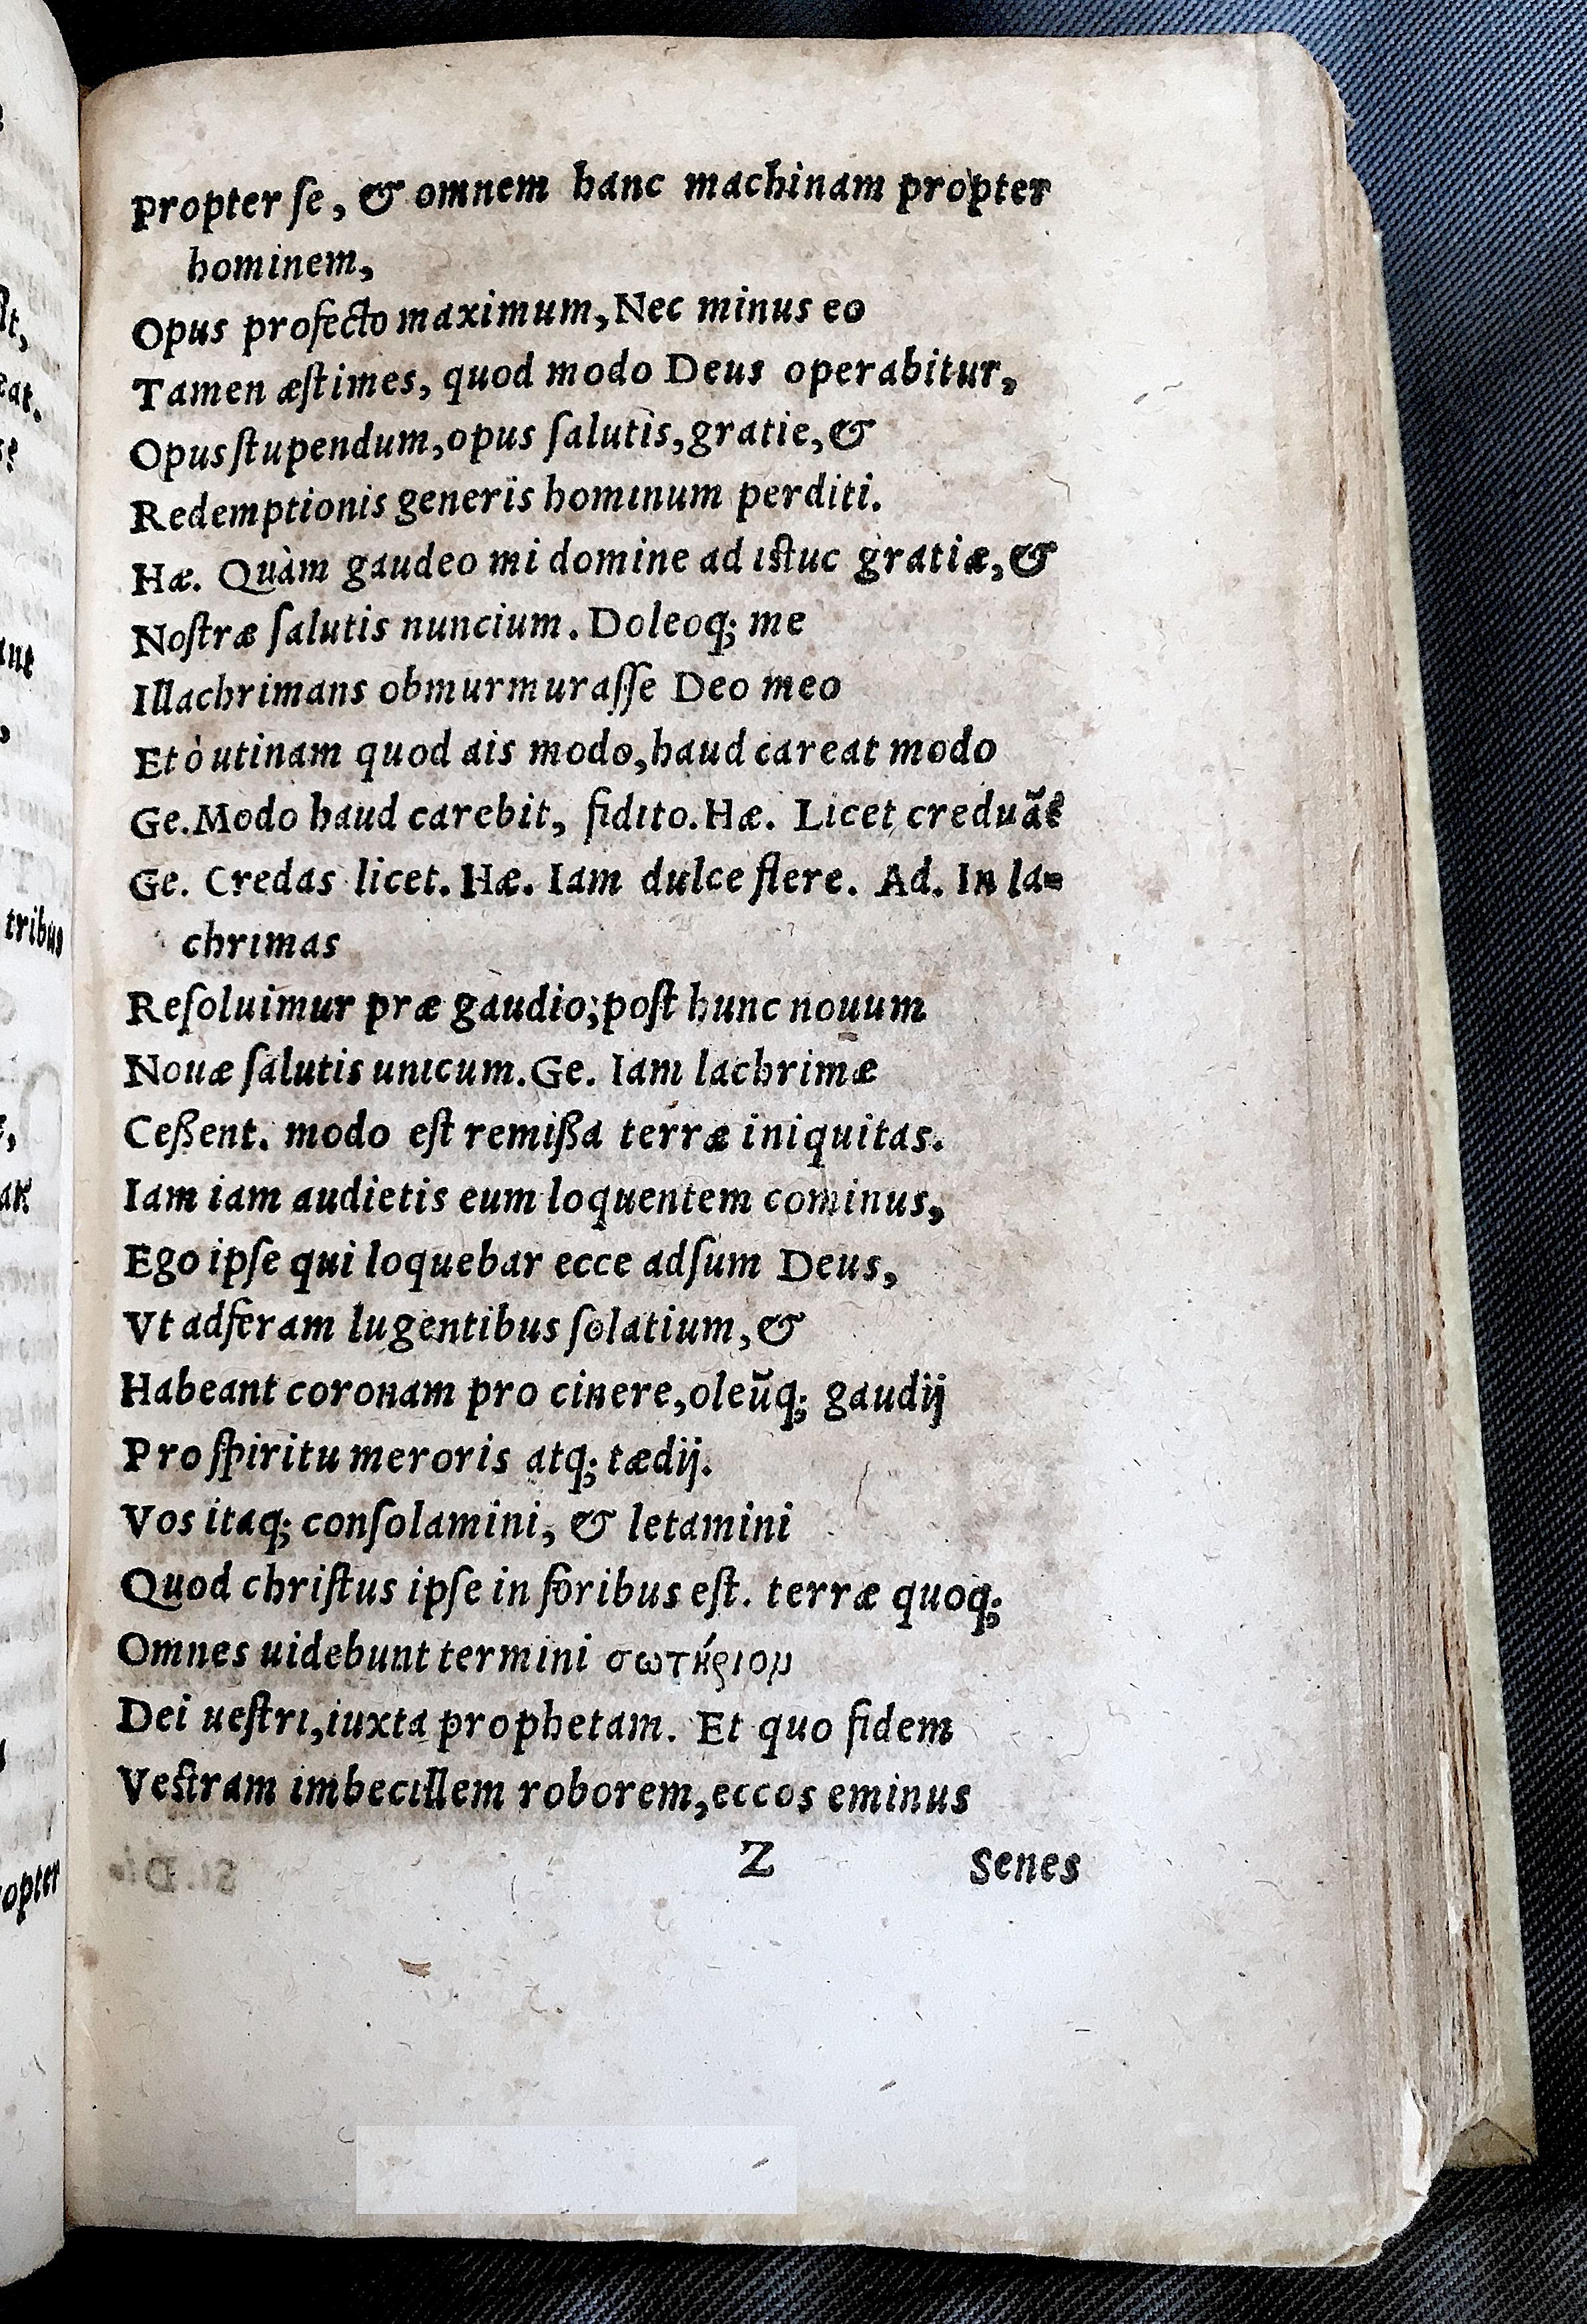 propter ſe, & omnem hanc machinam propter
hominem,
Opus profecto maximum, Nec minus eo
Tamen æſtimes, quod modo Deus operabitur,
Opus ſtupendum, opus ſalutis, gratie, &
Redemptionis generis hominum perditi.
Hæ. Quàm gaudeo mi domine ad iſtuc gratiæ, &
Noſtræ ſalutis nuncium. Doleoq; me
Illachrimans obmurmuraſſe Deo meo
Et ò utinam quod ais modo, haud careat modo
Ge. Modo haud carebit, fidito. Hæ. Licet creduãt
Ge. Credas licet. Hæ. Iam dulce flere. Ad. In la=
chrimas
Reſoluimur præ gaudio; poſt hunc nouum
Nouæ ſalutis unicum. Ge. Iam lachrimæ
Ceßent. modo eſt remißa terræ iniquitas.
Iam iam audietis eum loquentem cominus,
Ego ipſe qui loquebar ecce adſum Deus,
Vt adferam lugentibus ſolatium, &
Habeant coronam pro cinere, oleũq; gaudij
Pro ſpiritu meroris atq; tædij.
Vos itaq; conſolamini, & letamini
Quod chriſtus ipſe in foribus eſt. terræ quoq;
Omnes uidebunt termini σωτήριον
Dei ueſtri, iuxta prophetam. Et quo fidem
Veſtram imbecillem roborem, eccos eminus
Z Senes
tribus
opter